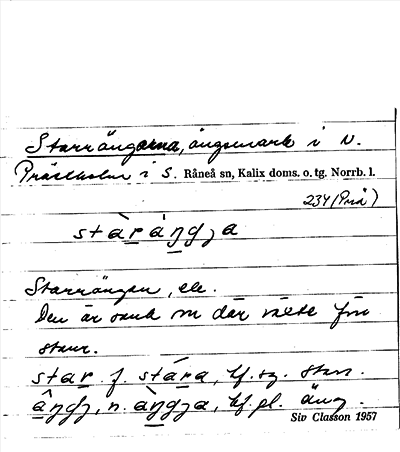 Starrängarna, ängsmark i N.
Prästholm i S. Råneå sn, Kalix doms. o. tg. Norrb. l.
234 (Prä)
stàràŋgɟa
Starrängen, ele.
Den är sank m där växte fin
starr.
star f. stára, bf. sg. starr.
âŋgɟ, n. àŋgɟa, bf. pl. äng.
Siv Classon 1957